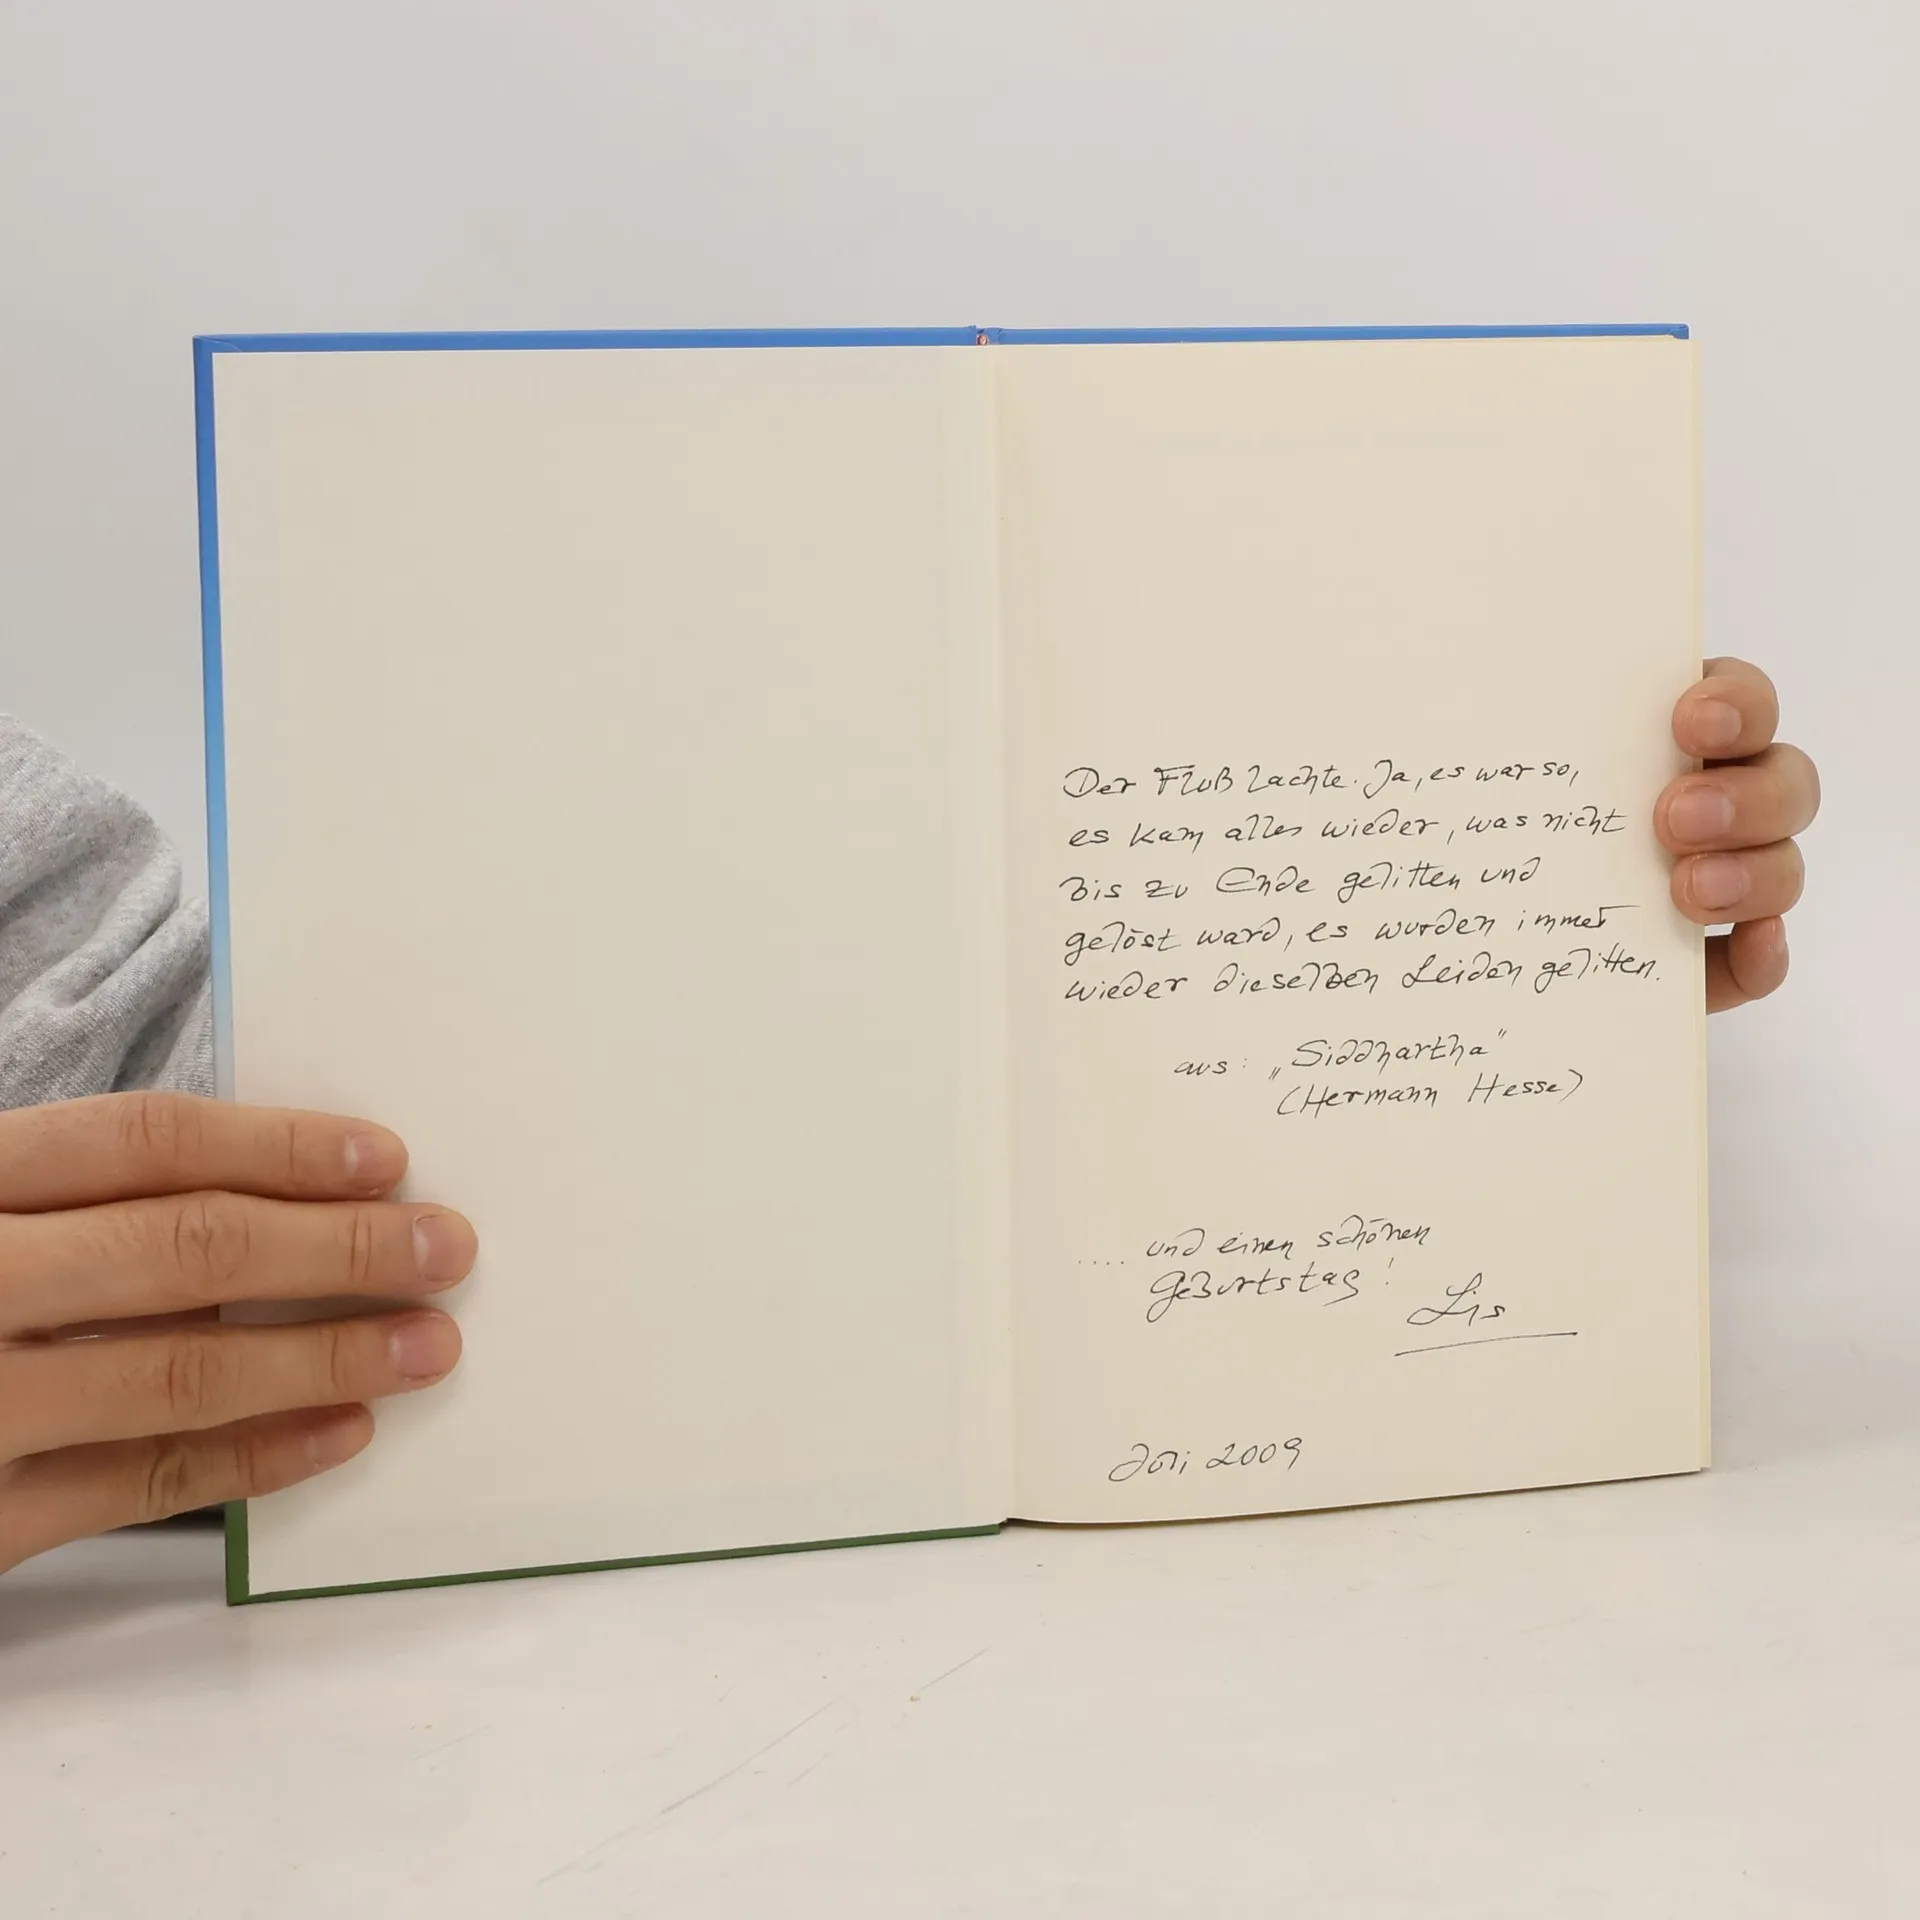 Der Fluß lachte. Ja, es war so,
es kam alles wieder, was nicht
bis zu Ende gelitten und
gelöst ward, es wurden immer
wieder dieselben Leiden gelitten.
aus: „Siddhartha"
(Hermann Hesse)
.... und einen schönen
Geburtstag!
Lis
Juli 2009